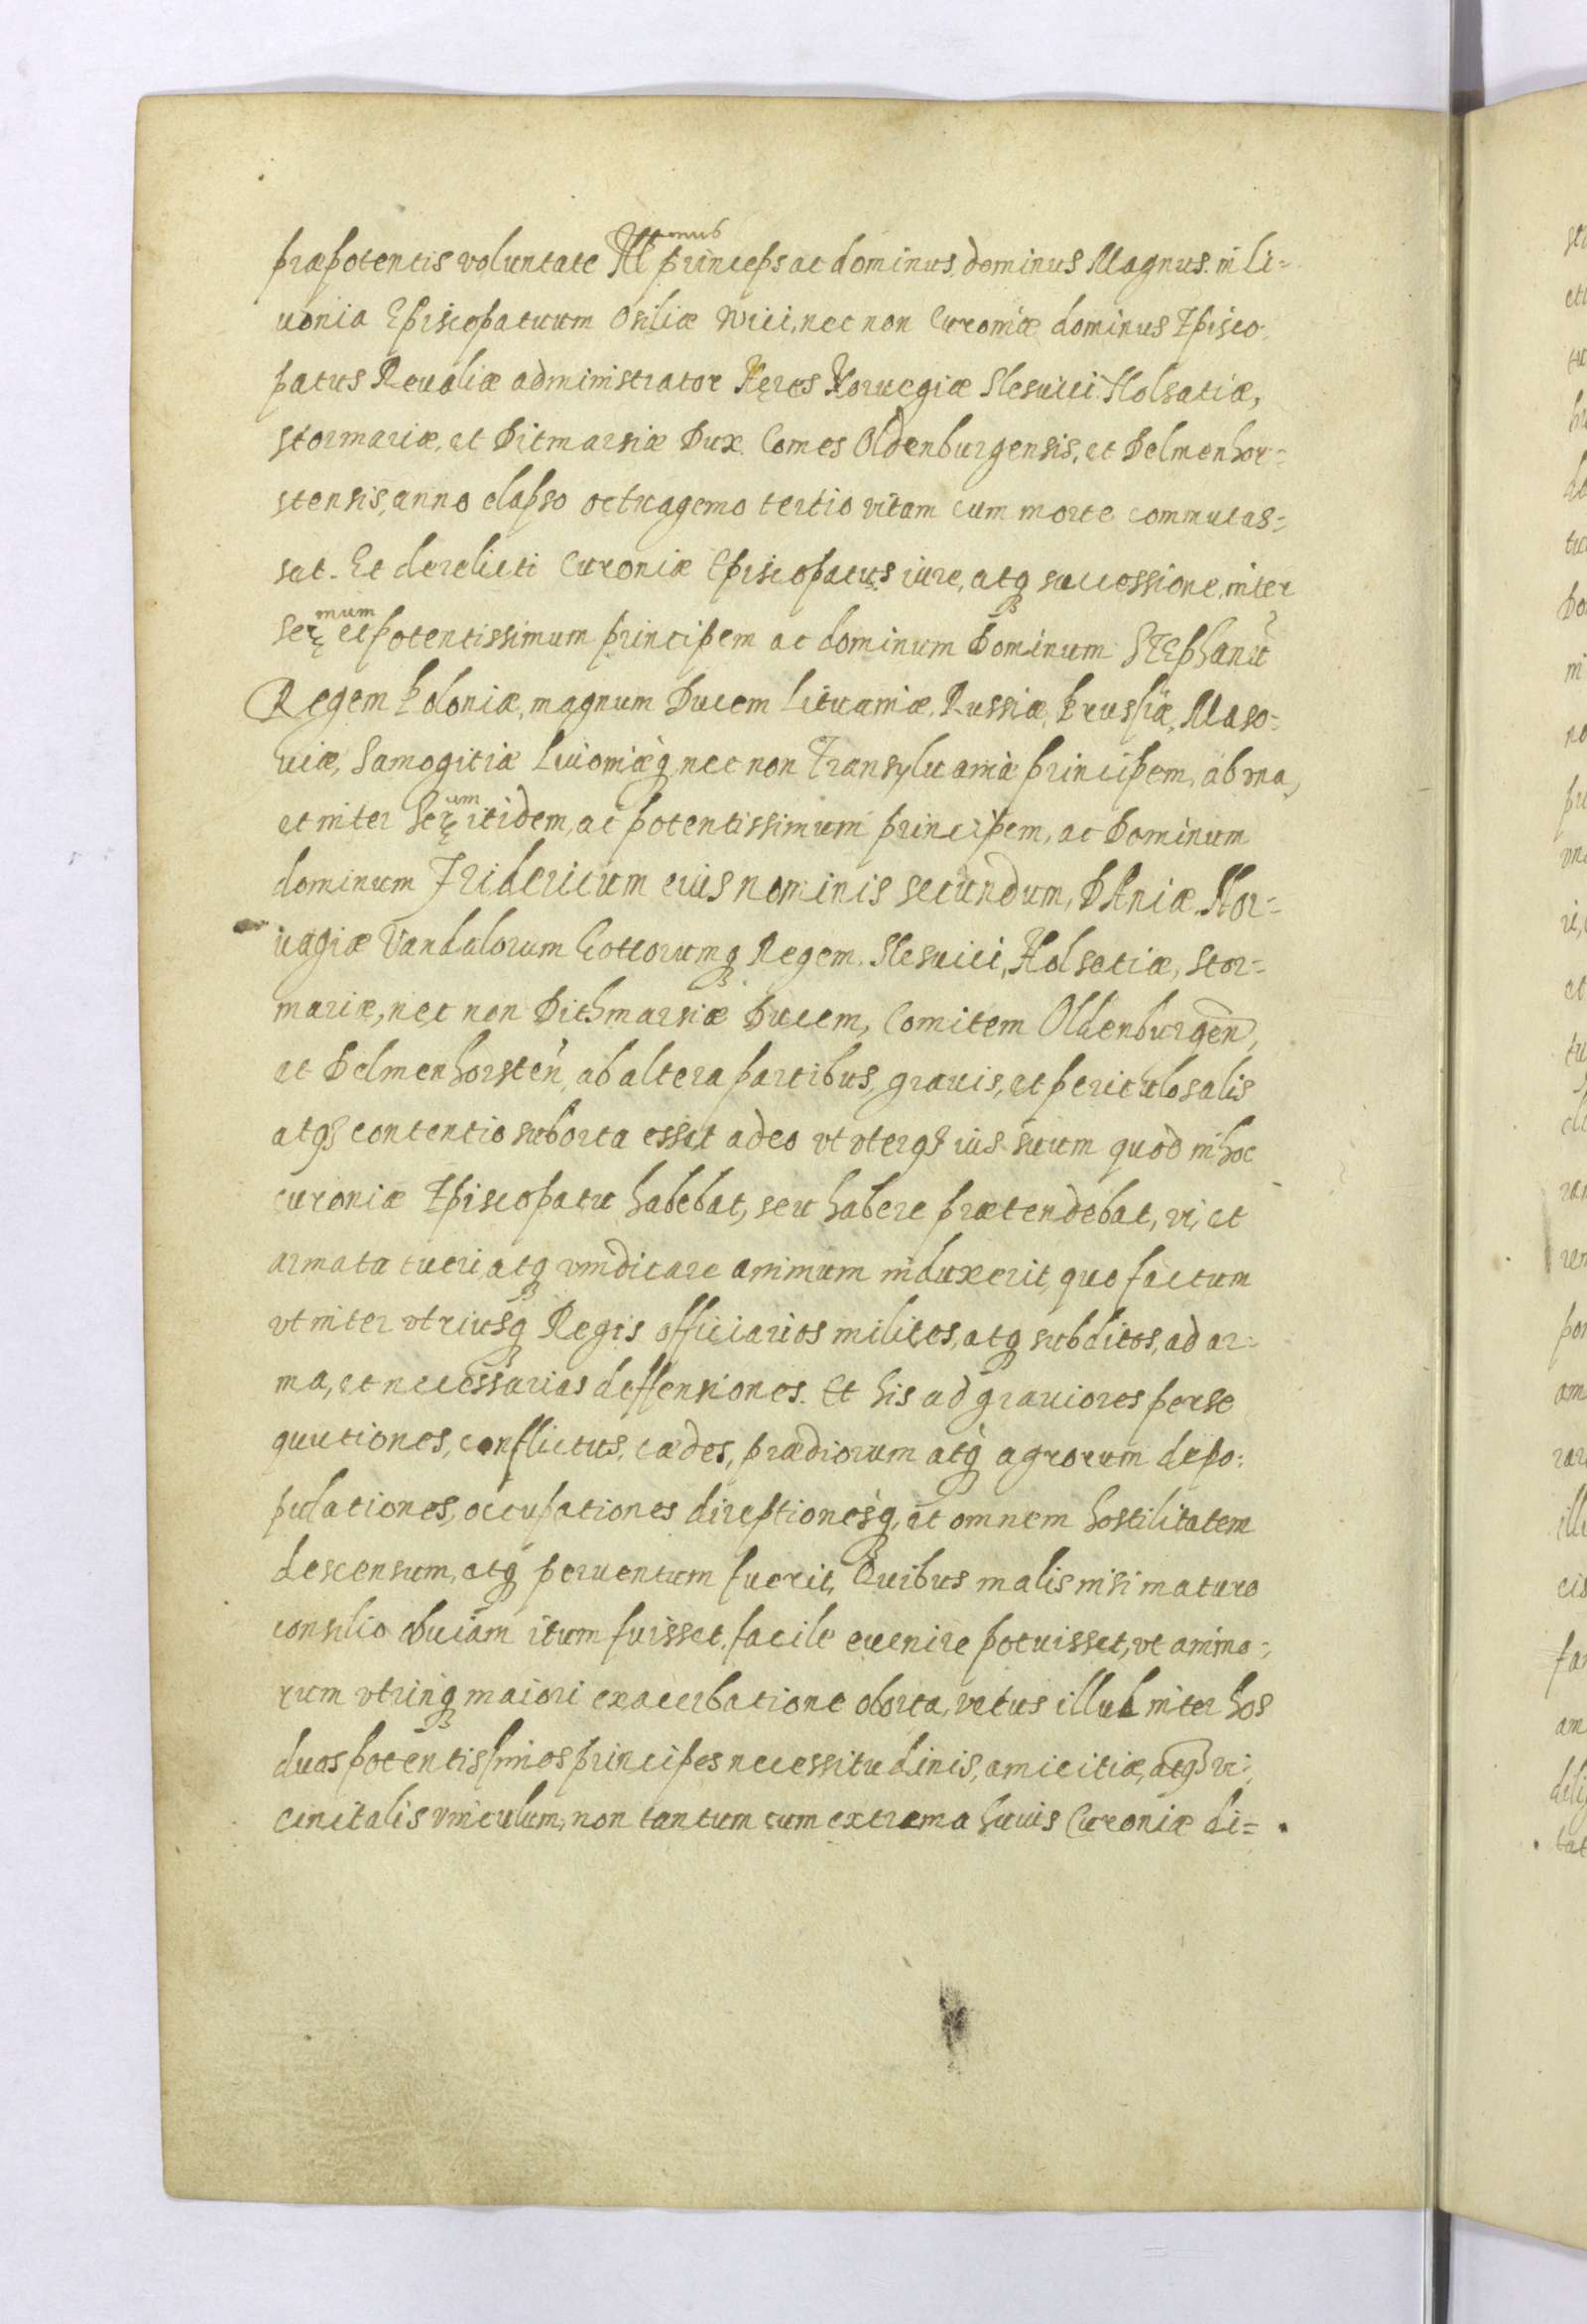 præpotentis voluntate Ill<sup>mus</sup> princeps ac dominus, dominus Magnus in Li=
uonia Episcopatuum Osiliæ Wici, nec non Curoniæ dominus Episco-
patus Reualiæ administrator Hęres Noruegiæ Slesuici Holsatiæ,
Stormariæ, et Ditmarsiæ Dux. Comes Oldenburgensis, et Delmenhor=
stensis, anno elapso octuagemo tertio vitam cum morte commutas=
set. Et derelicti Curoniæ Episcopatus iure, atq successione, inter
Ser<sup>mum</sup> et potentissimum principem ac dominum Dominum STEphanũ
Regem Poloniæ, magnum Ducem Lituaniæ, Russiæ, Prussiæ, Maso=
uiæ, Samogitiæ Liuoniæq nec non Transyluaniæ principem, ab vna,
et inter Ser<sup>um</sup> itidem, ac potentissimum principem, ac Dominum
dominum Fridericum eius nominis secundum, DAniæ Nor=
uagiæ Vandalorum Gottorumq Regem. Slesuici, Holsatiæ, Stor=
mariæ, nec non Dithmarsiæ Ducem, Comitem Oldenburgen̄,
et Delmenhorsten̄, ab altera partibus, grauis, et periculosa lis
atq contentio suborta esset adeo vt vterq ius suum quod in hoc
curoniæ Episcopatu habebat, seu habere prætendebat, vi, et
armata tueri, atq vindicare animum induxerit, quo factum
vt inter vtriusq Regis officiarios milites, atq subditos, ad ar=
ma, et necessarias deffensiones. Et his ad grauiores perse
quutiones, conflictus, cædes, prædiorum atq agrorum depo=
pulationes, occupationes direptionesq, et omnem hostilitatem
descensum, atq peruentum fuerit, Quibus malis nisi maturo
consilio obuiam itum fuisset, facile euenire potuisset, vt animo=
rum vtrinq maiori exacerbatione oborta, vetus illud inter hos
duos potentissimos principes necessitudinis, amicitiæ, atq vi:
cinitalis vinculum, non tantum cum extrema huius Curoniæ di=